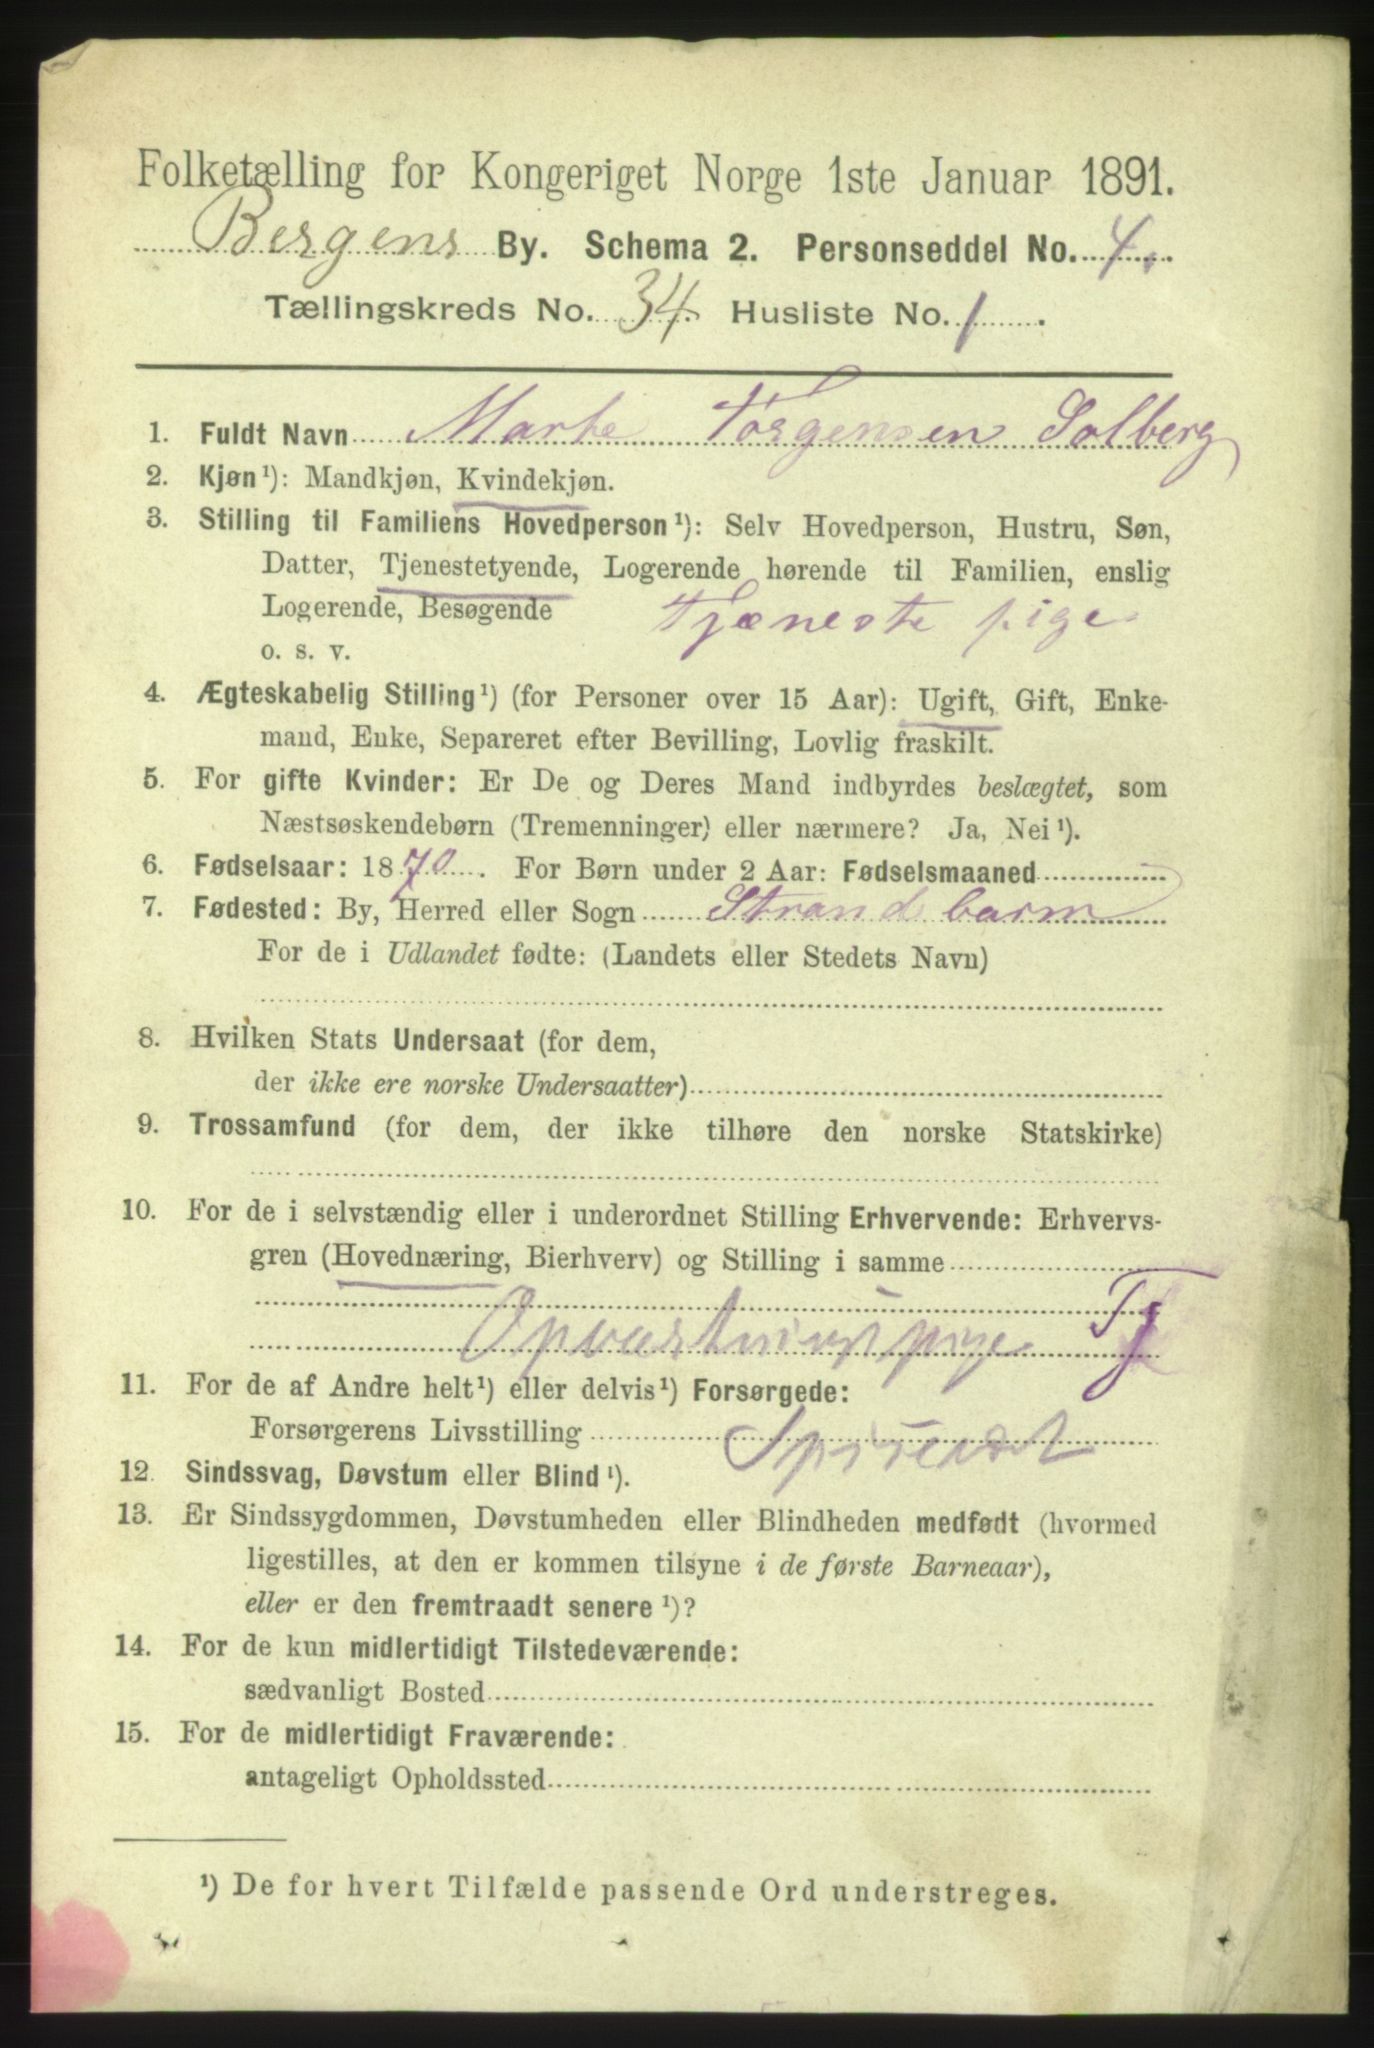 Folketælling for Kongeriget Norge 1ste Januar 1891.
Bergens By. Schema 2. Personseddel No. 4.
Tællingskreds No. 34. Husliste No. 1.
1. Fuldt Navn Marte Torgensen Solberg
2. Kjøn¹): Mandkjøn, Kvindekjøn.
3. Stilling til Familiens Hovedperson¹): Selv Hovedperson, Hustru, Søn,
Datter, Tjenestetyende, Logerende hørende til Familien, enslig
Logerende, Besøgende Tjæneste pige
o. s. v.
4. Ægteskabelig Stilling¹) (for Personer over 15 Aar): Ugift, Gift, Enke-
mand, Enke, Separeret efter Bevilling, Lovlig fraskilt.
5. For gifte Kvinder: Er De og Deres Mand indbyrdes beslægtet, som
Næstsøskendebørn (Tremenninger) eller nærmere? Ja, Nei¹).
6. Fødselsaar: 1870. For Børn under 2 Aar: Fødselsmaaned
7. Fødested: By, Herred eller Sogn Strandbarm
For de i Udlandet fødte: (Landets eller Stedets Navn)
8. Hvilken Stats Undersaat (for dem,
der ikke ere norske Undersaatter)
9. Trossamfund (for dem, der ikke tilhøre den norske Statskirke)
10. For de i selvstændig eller i underordnet Stilling Erhvervende: Erhvervs-
gren (Hovednæring, Bierhverv) og Stilling i samme
Opvartningspige Tj
11. For de af Andre helt¹) eller delvis¹) Forsørgede:
Forsørgerens Livsstilling
12. Sindssvag, Døvstum eller Blind¹).
13. Er Sindssygdommen, Døvstumheden eller Blindheden medfødt (hvormed
ligestilles, at den er kommen tilsyne i de første Barneaar),
eller er den fremtraadt senere¹)?
14. For de kun midlertidigt Tilstedeværende:
sædvanligt Bosted
15. For de midlertidigt Fraværende:
antageligt Opholdssted
¹) De for hvert Tilfælde passende Ord understreges.